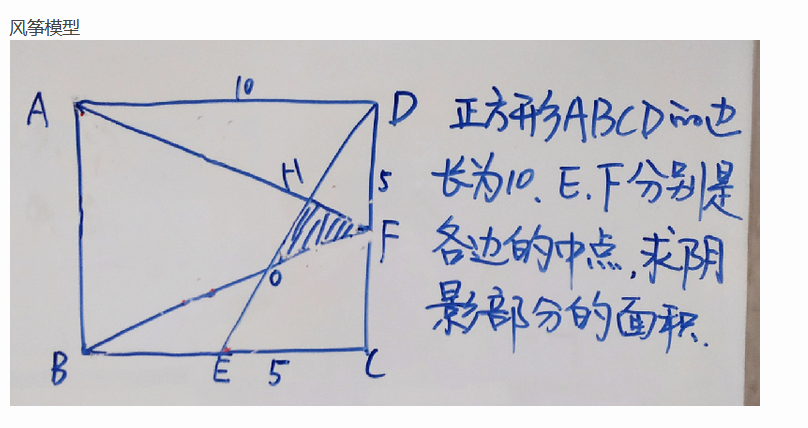 风筝模型
10
A
D
H
5
F
O
B
E
5
C
正方形ABCD的边
长为10、E、F分别是
各边的中点,求阴
影部分的面积.